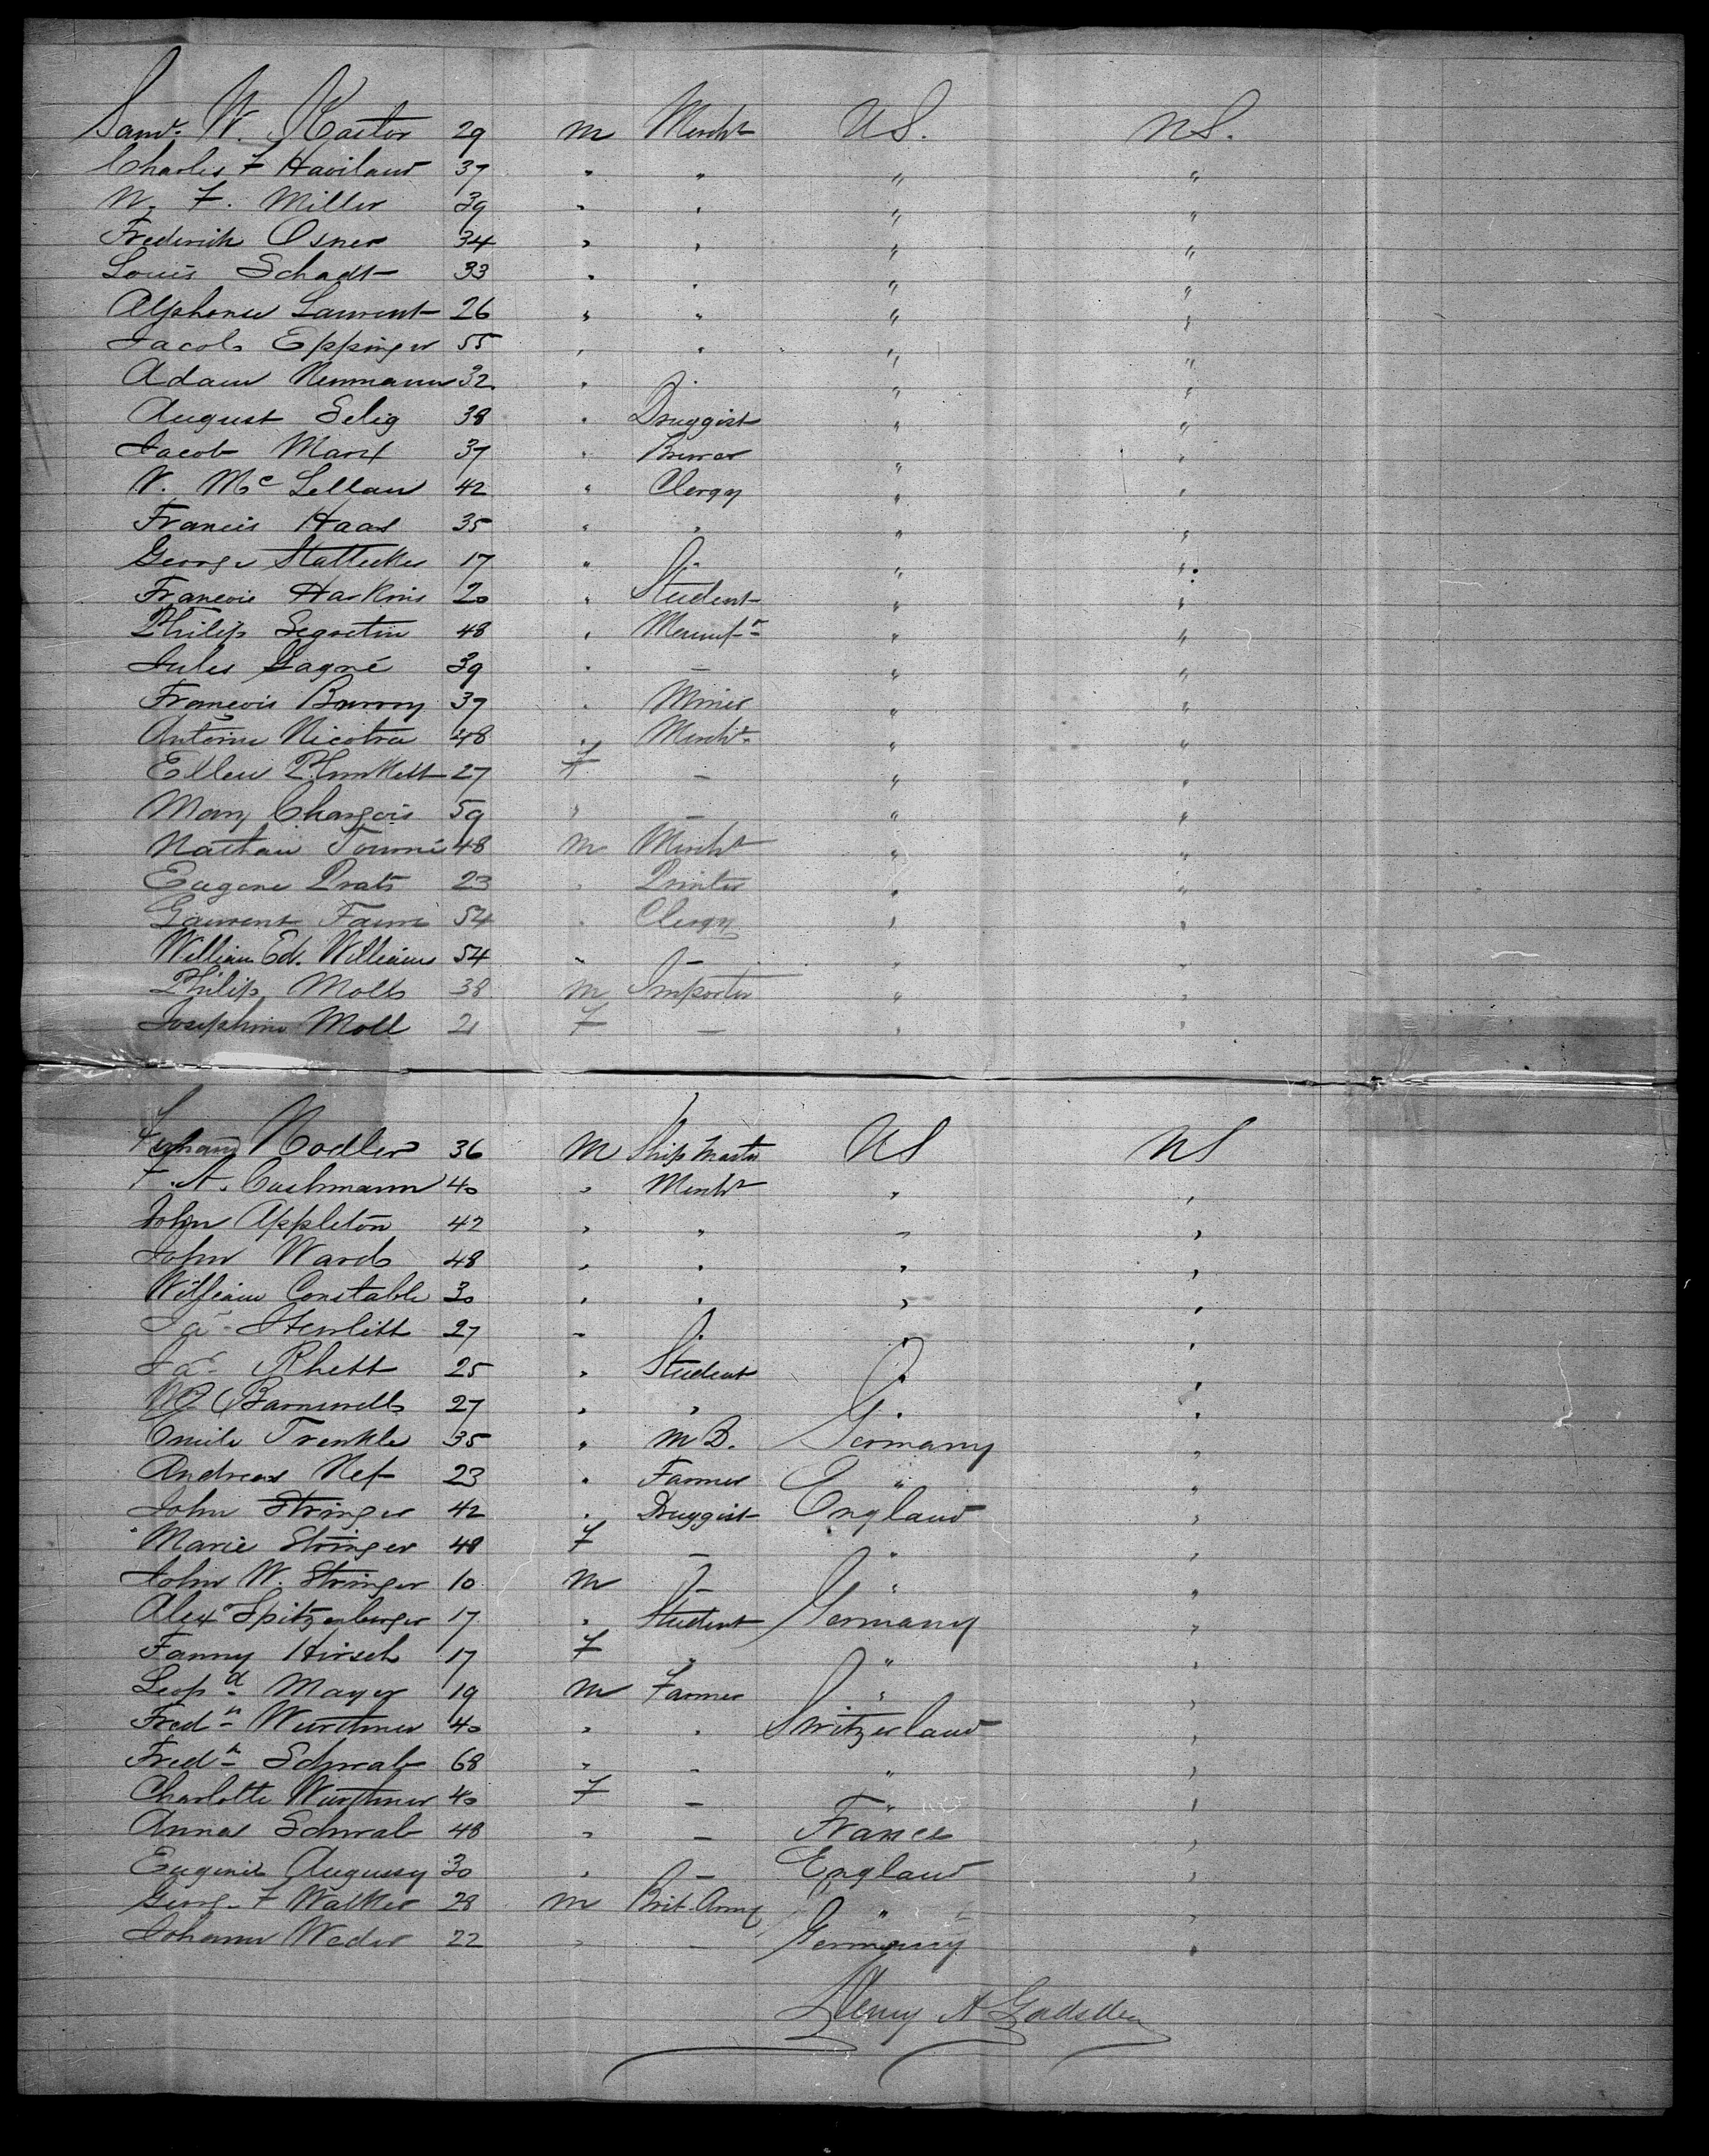 Saml. W. Kastor 29 m Mercht US. US.
Charles F Haviland 37 " " " "
W. F. Miller 39 " " " "
Frederick Osner 34 " " " "
Louis Schadt 33 " " " "
Alphonse Laurent 26 " " " "
Jacob Eppinger 55 " " " "
Adam Neumann 32 " " " "
August Selig 38 " Druggist " "
Jacob Marx 37 " Brewer " "
W. McLellan 42 " Clergy " "
Francis Haas 35 " " " "
George 17 " - " "
Francois Haskins 20 " Student " "
Philip Segretin 48 " Manufr " "
Jules Gagné 39 " - " "
François 37 " Miner " "
Antoine Nicotra 48 " Mercht. " "
Ellen Plunkett 27 F - " "
Mary 59 " - " "
Nathan 48 m Mercht " "
Eugene Prats 23 " Printer " "
Laurent Faure 54 " Clergy " "
William Ed. Williams 54 " - " "
Philip Moll 38 m Importer " "
Josephine Moll 21 F - " "
Nodler 36 M Ship Master US US
F. A. Cushmann 40 " Mercht " "
John Appleton 42 " " " "
John Ward 48 " " " "
William Constable 30 " " " "
Ja Hewlitt 27 " " " "
Ja Rhett 25 " Student " "
Barnwell 27 " " " "
Emile Trenkle 35 " M D. Germany "
Andreas Nef 23 " Farmer " "
John Stringer 42 " Druggist England "
Marie Stringer 48 F - " "
John W. Stringer 10 m - " "
Alex Spitzenberger 17 " Student Germany "
Fanny Hirsch 17 F " " "
Leopd Mayer 19 m Farmer " "
Fredk Wurthner 40 " " Switzerland "
Fredk Schwab 68 " - " "
Charlotte Wurthner 40 F - " "
Anna Schwab 48 " - France "
Eugenie 30 " - England "
George F Walker 28 m Brit. Army " "
Johann Weder 22 " - Germany "
Henry A Gadsden